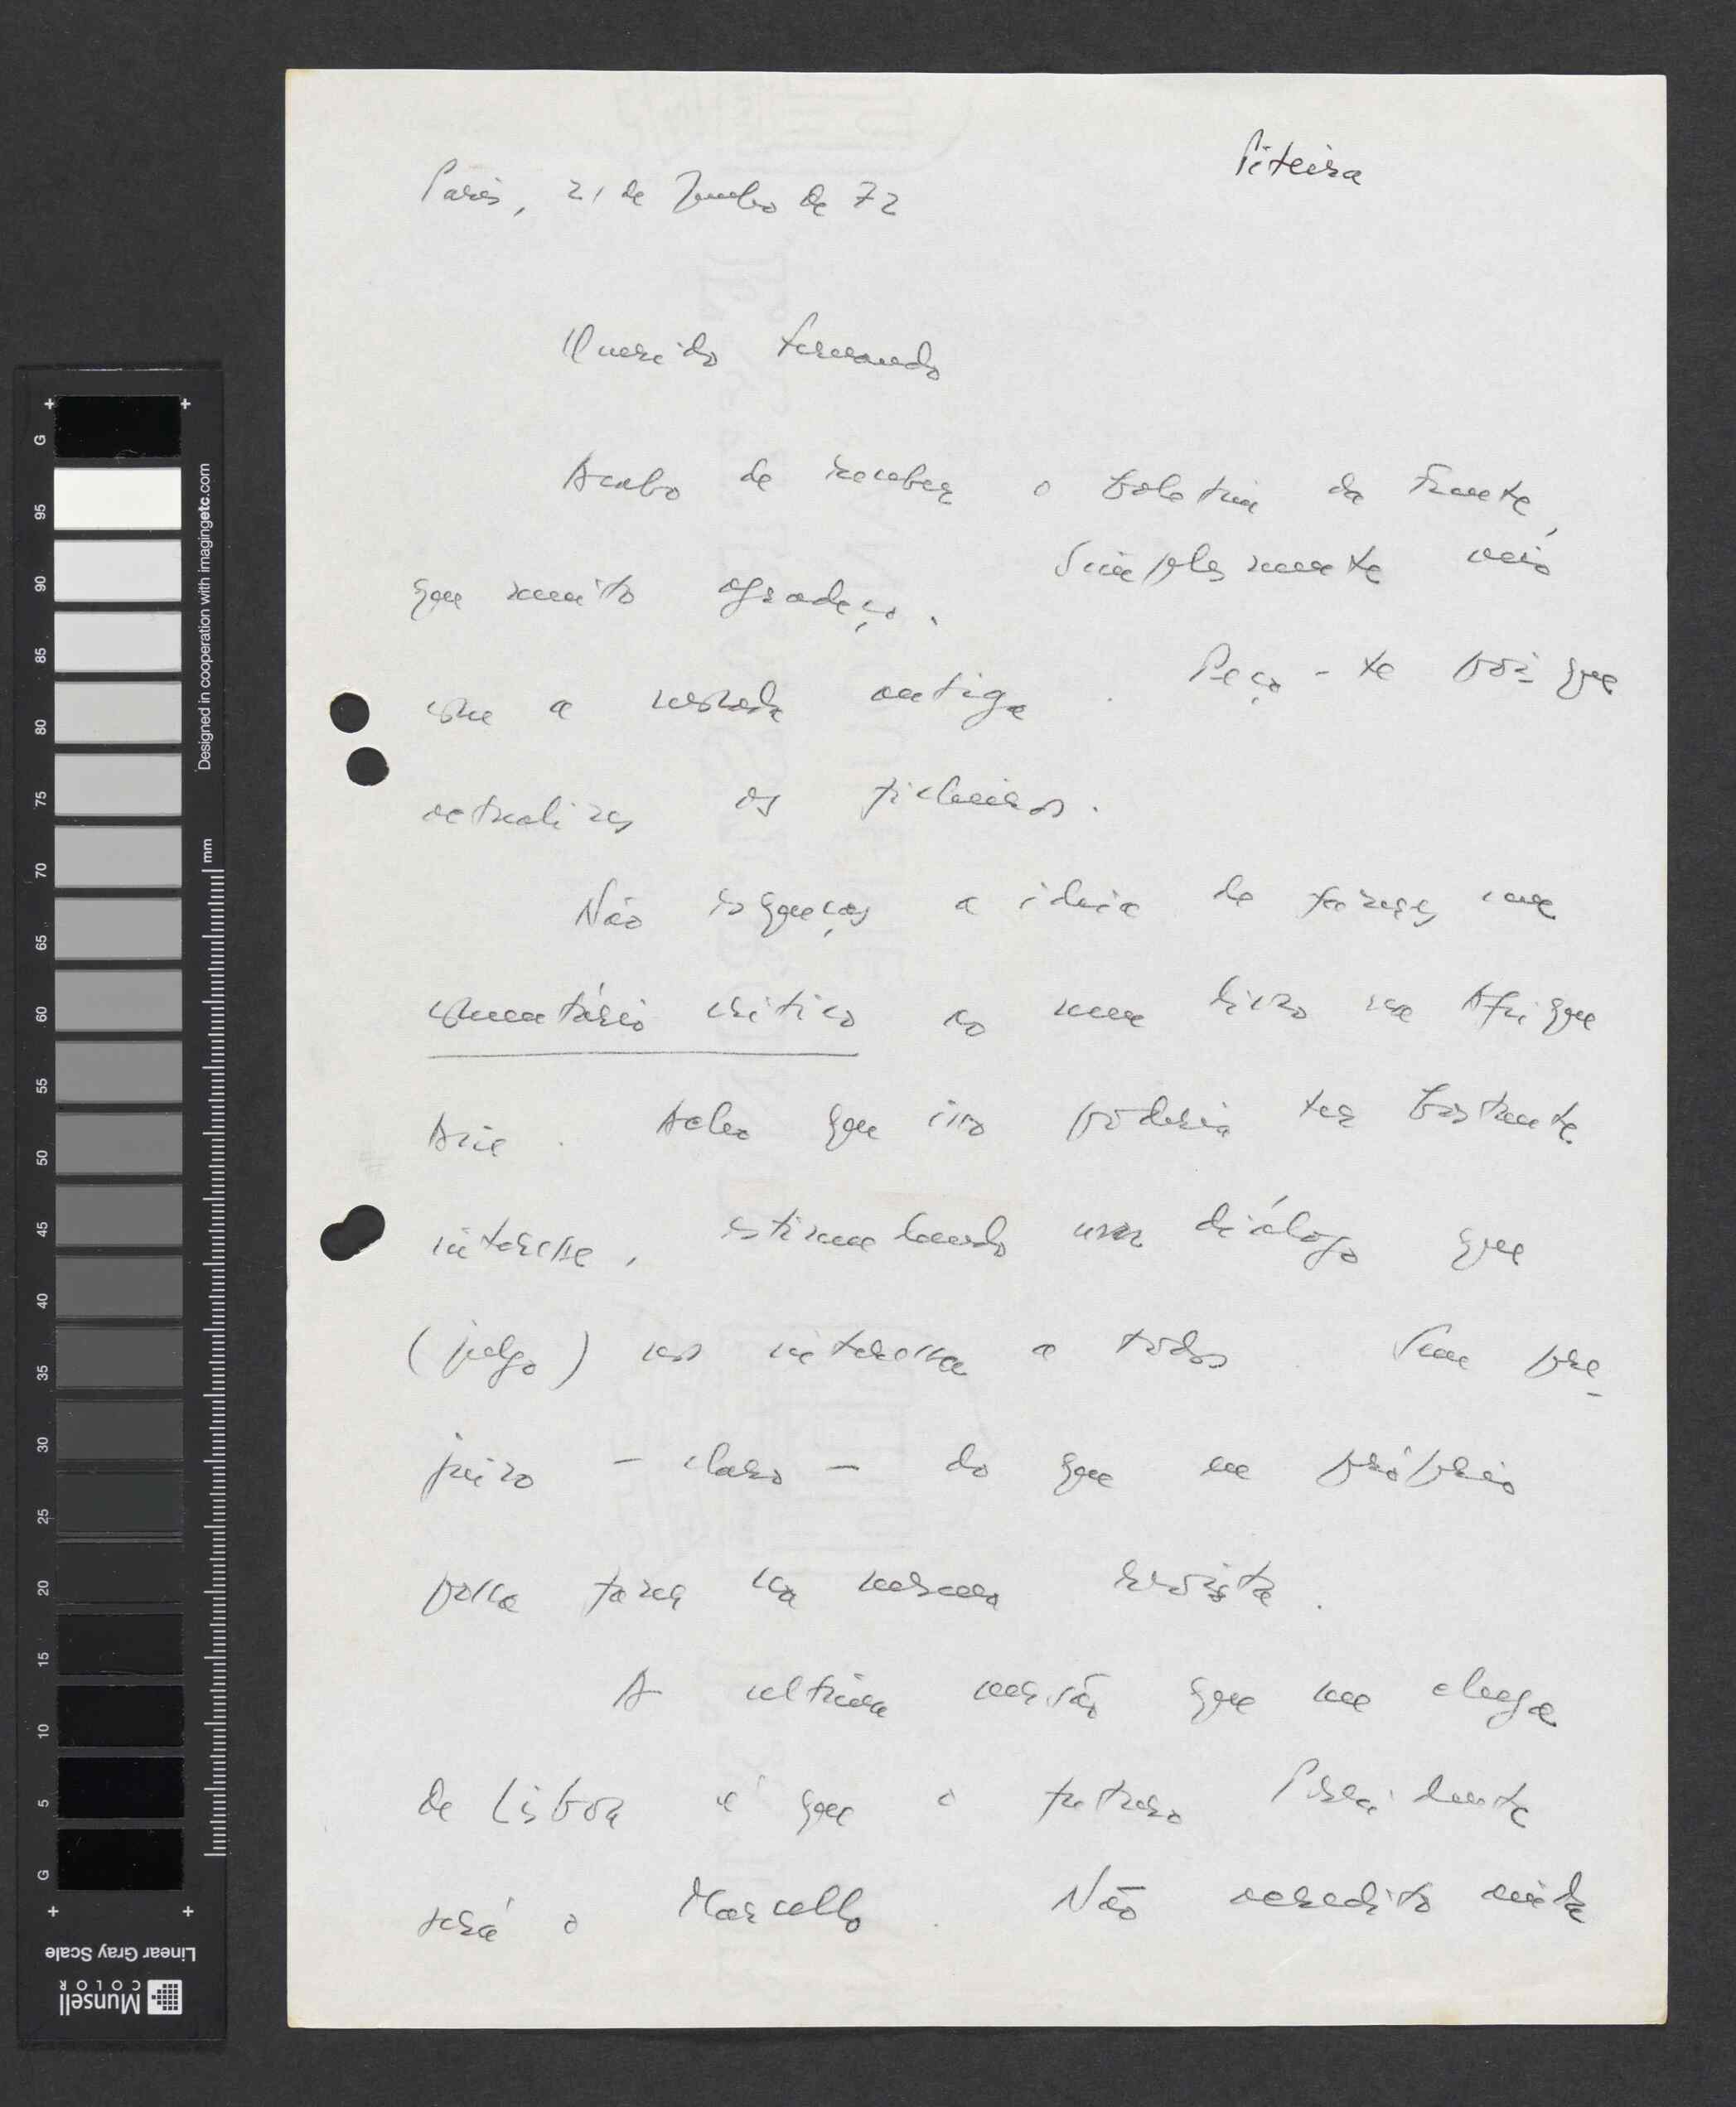 Piteira
Paris, 21 de Junho de 72
Querido Fernando
Acabo de receber o boletim da Frente,
que muito agradeço. Simplesmente veio
com a morada antiga. Peço-te pois que
actualizes os ficheiros.
Não esqueças a ideia de fazeres um
comentário crítico ao meu livro na Afrique
Asie. Acho que isso poderia ter bastante
interesse, estimulando um diálogo que
(julgo) nos interessa a todos. Sem pre-
juizo - claro - do que eu próprio
possa fazer na mesma revista.
A ultima versão que me chega
de Lisboa é que o futuro Presidente
será o Marcello. Não acredito ainda
G 95 90 85 80 75 70 65 60 55 50 45 40 35 30 25 20 15 10 5 G
mm
Designed in cooperation with imagingetc.com
Linear Gray Scale
Munsell
COLOR